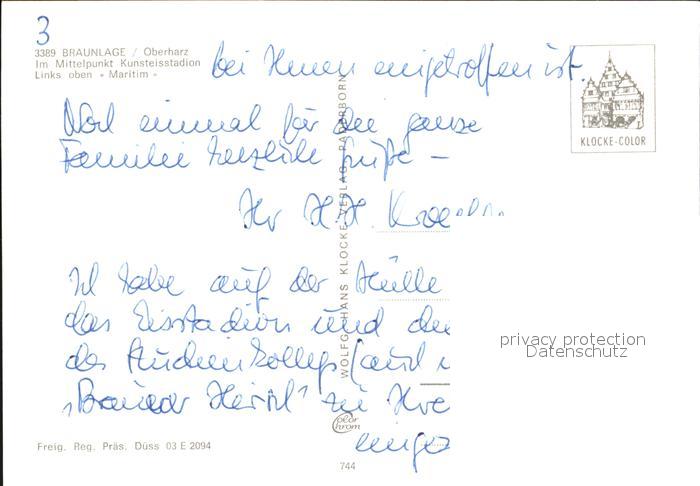 3
3389 BRAUNLAGE / Oberharz
Im Mittelpunkt Kunsteisstadion
Links oben » Maritim «
bei Ihnen eingetroffen ist.
Noch einmal für die ganze
Familie herzliche Grüße –
Ihr H.H.
Ich habe auf der Hülle
das Eisstadion und
des Studienkollegs
"Brauner Hirsch" zu Ihre
KLOCKE-COLOR
WOLFG. HANS KLOCKE VERLAG, PADERBORN
privacy protection
Datenschutz
Color
chrom
Freig. Reg. Präs. Düss 03 E 2094
744